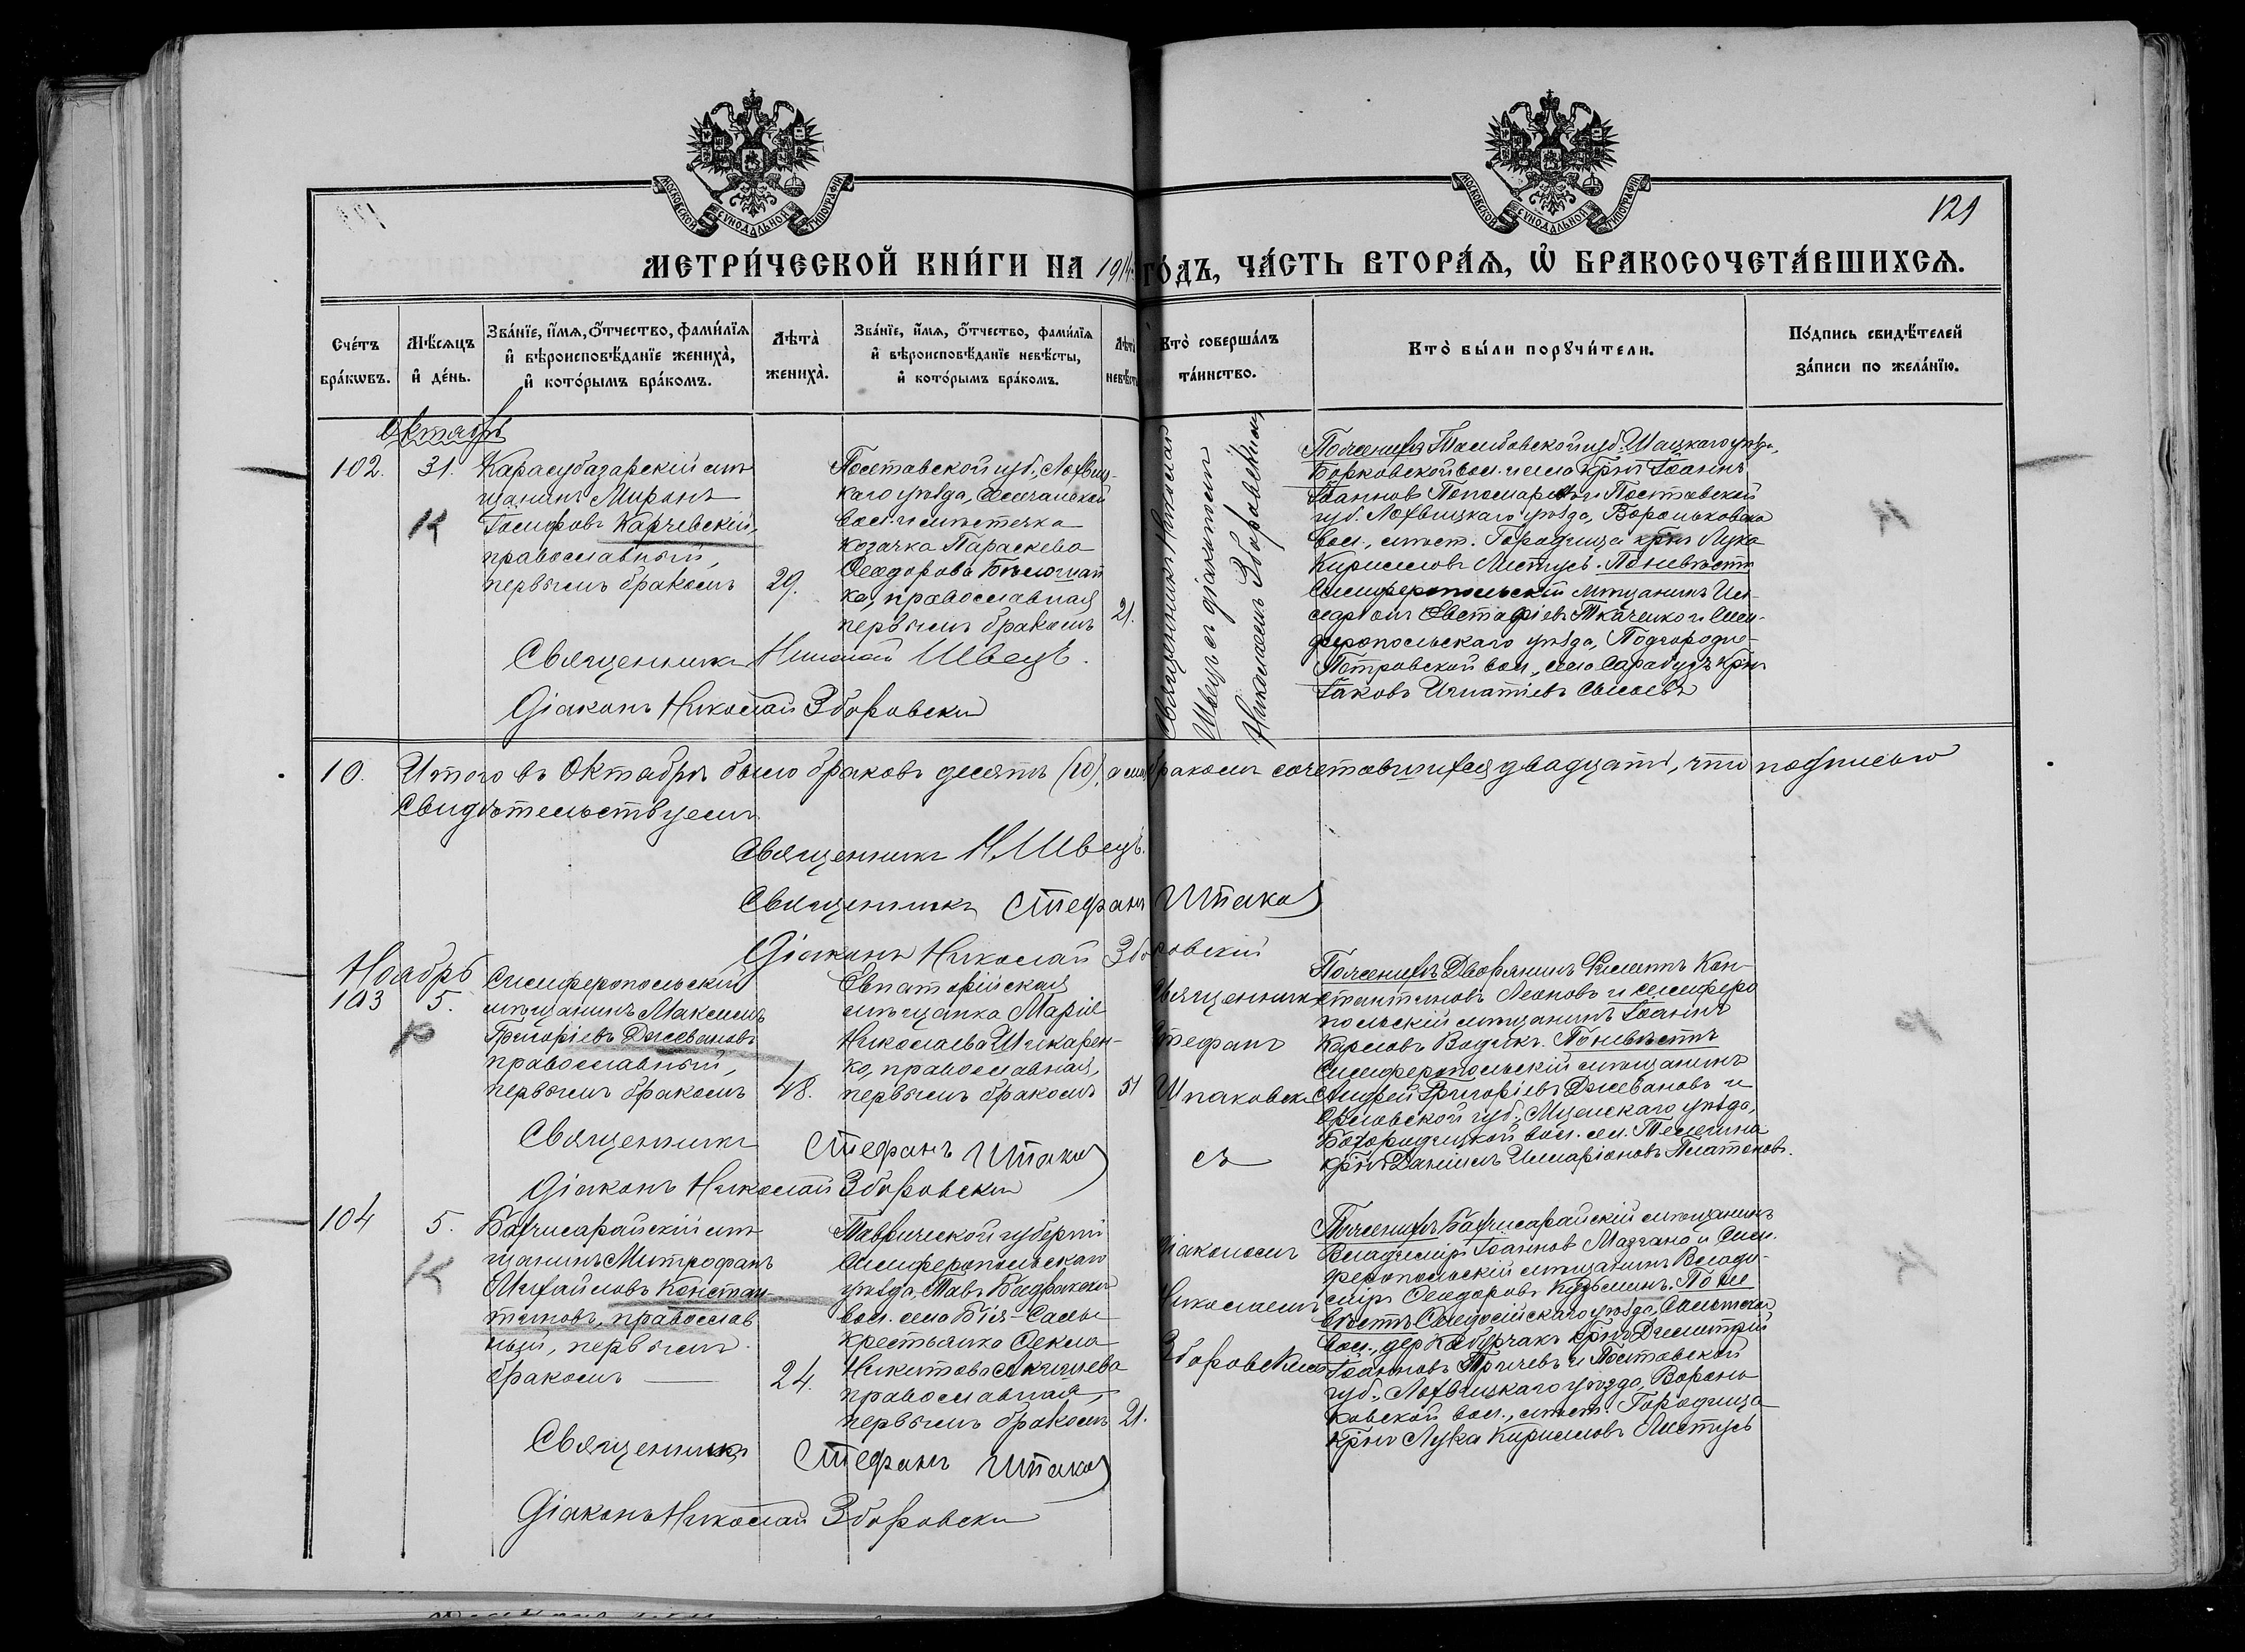 МОСКОВСКОЙ СУНОДАЛЬНОЙ ТИПОГРАФІИ
МОСКОВСКОЙ СУНОДАЛЬНОЙ ТИПОГРАФІИ
121
МЕТРИ́ЧЕСКОЙ КНИ́ГИ НА 1914 ГО́ДЪ, ЧА́СТЬ ВТОРА́Ѧ, Ѡ҆ БРАКОСОЧЕТА́ВШИХСѦ.
Сче́тъ
бра́кѡвъ.
Мѣ́сѧцъ
и҆ де́нь.
Зва́нїе, и҆́мѧ, ѻ҆́тчество, фами́лїѧ
и҆ вѣроисповѣ́данїе жениха̀,
и҆ кото́рымъ бра́комъ.
Лѣта̀
жениха̀.
Зва́нїе, и҆́мѧ, ѻ҆́тчество, фами́лїѧ
и҆ вѣроисповѣ́данїе невѣ́сты,
и҆ кото́рымъ бра́комъ.
Лѣта̀
невѣ́сты
Кто̀ соверша́лъ
та́инство.
Кто̀ бы́ли порꙋчи́тели.
По́дпись свидѣ́телей
за́писи по жела́нїю.
Октябрь
102.
31.
Карасубазарскій мѣ-
щанинъ Миронъ
Іосифовъ Карчевскій,
православный,
первымъ бракомъ
29.
Полтавской губ., Лохвиц-
каго уѣзда,
вол. и мѣстечка
козачка Параскева
Ѳеодорова
ка, православная
первымъ бракомъ
21.
Священникъ Николай
Швецъ и діакономъ
Николаемъ Зборовскимъ
По женихѣ Тамбовской губ. Шацкаго уѣзда,
Борковской вол. и села крнъ Іоаннъ
Іоанновъ Пономаревъ и Полтавской
губ. Лохвицкаго уѣзда, Вороньковской
вол., мѣст. Городища крнъ Лука
Кирилловъ Листусь. По невѣстѣ
Симферопольскій мѣщанинъ
Евстафіевъ Ткаченко и Сим-
феропольскаго уѣзда, Подгородне-
Петровской вол., села Сарабузъ крнъ
Іаковъ Игнатіевъ
Священникъ Николай Швецъ.
Діаконъ Николай Зборовскій
10. Итого въ Октябрѣ было браковъ десять (10), а бракомъ сочетавшихся двадцать, что подписью
свидѣтельствуемъ
Священникъ Н. Швецъ.
Священникъ Стефанъ Шпако
Діаконъ Николай Зборовскій
Ноябрь
103
5.
Симферопольскій
мѣщанинъ Максимъ
Григоріевъ Джевановъ
православный,
первымъ бракомъ
48.
Евпаторійская
мѣщанка Марія
Николаева Шкарен-
ко, православная,
первымъ бракомъ
51
Священникъ
Стефанъ
Шпаковск
съ
По женихѣ Дворянинъ Филиппъ Кон-
стантиновъ Леоновъ и Симферо
польскій мѣщанинъ Іоаннъ
Карповъ Водчкъ. По невѣстѣ
Симферопольскій мѣщанинъ
Андрей Григоріевъ Джевановъ и
Орловской губ., Мценскаго уѣзда,
Богородицкой вол. сел. Телегина
крнъ Даніилъ Иларіоновъ Платоновъ.
Священникъ Стефанъ Шпако
Діаконъ Николай Зборовскій
104
5.
Бахчисарайскій мѣ-
щанинъ Митрофанъ
Михайловъ Констан-
тиновъ, православ
ный, первымъ
бракомъ
24.
Таврической губерніи
Симферопольскаго
уѣзда Тавъ Бадракской
вол. села Бія-Сала
крестьянка Ѳекла
Никитова
православная,
первымъ бракомъ
21.
діакономъ
Николаемъ
Зборовскимъ
По женихѣ Бахчисарайскій мѣщанинъ
Владиміръ Іоанновъ Мазгано и Сим-
феропольскій мѣщанинъ Влади-
міръ Ѳеодоровъ Кузьминъ. По не
вѣстѣ Ѳеодосійскаго уѣзда,
вол., дер. Кабурчакъ крнъ Димитрій
Іоанновъ и Полтавской
губ., Лохвицкаго уѣзда, Воронь
ковской вол., мѣст. Городища
крнъ Лука Кирилловъ Листусь
Священникъ Стефанъ Шпако
Діаконъ Николай Зборовскій